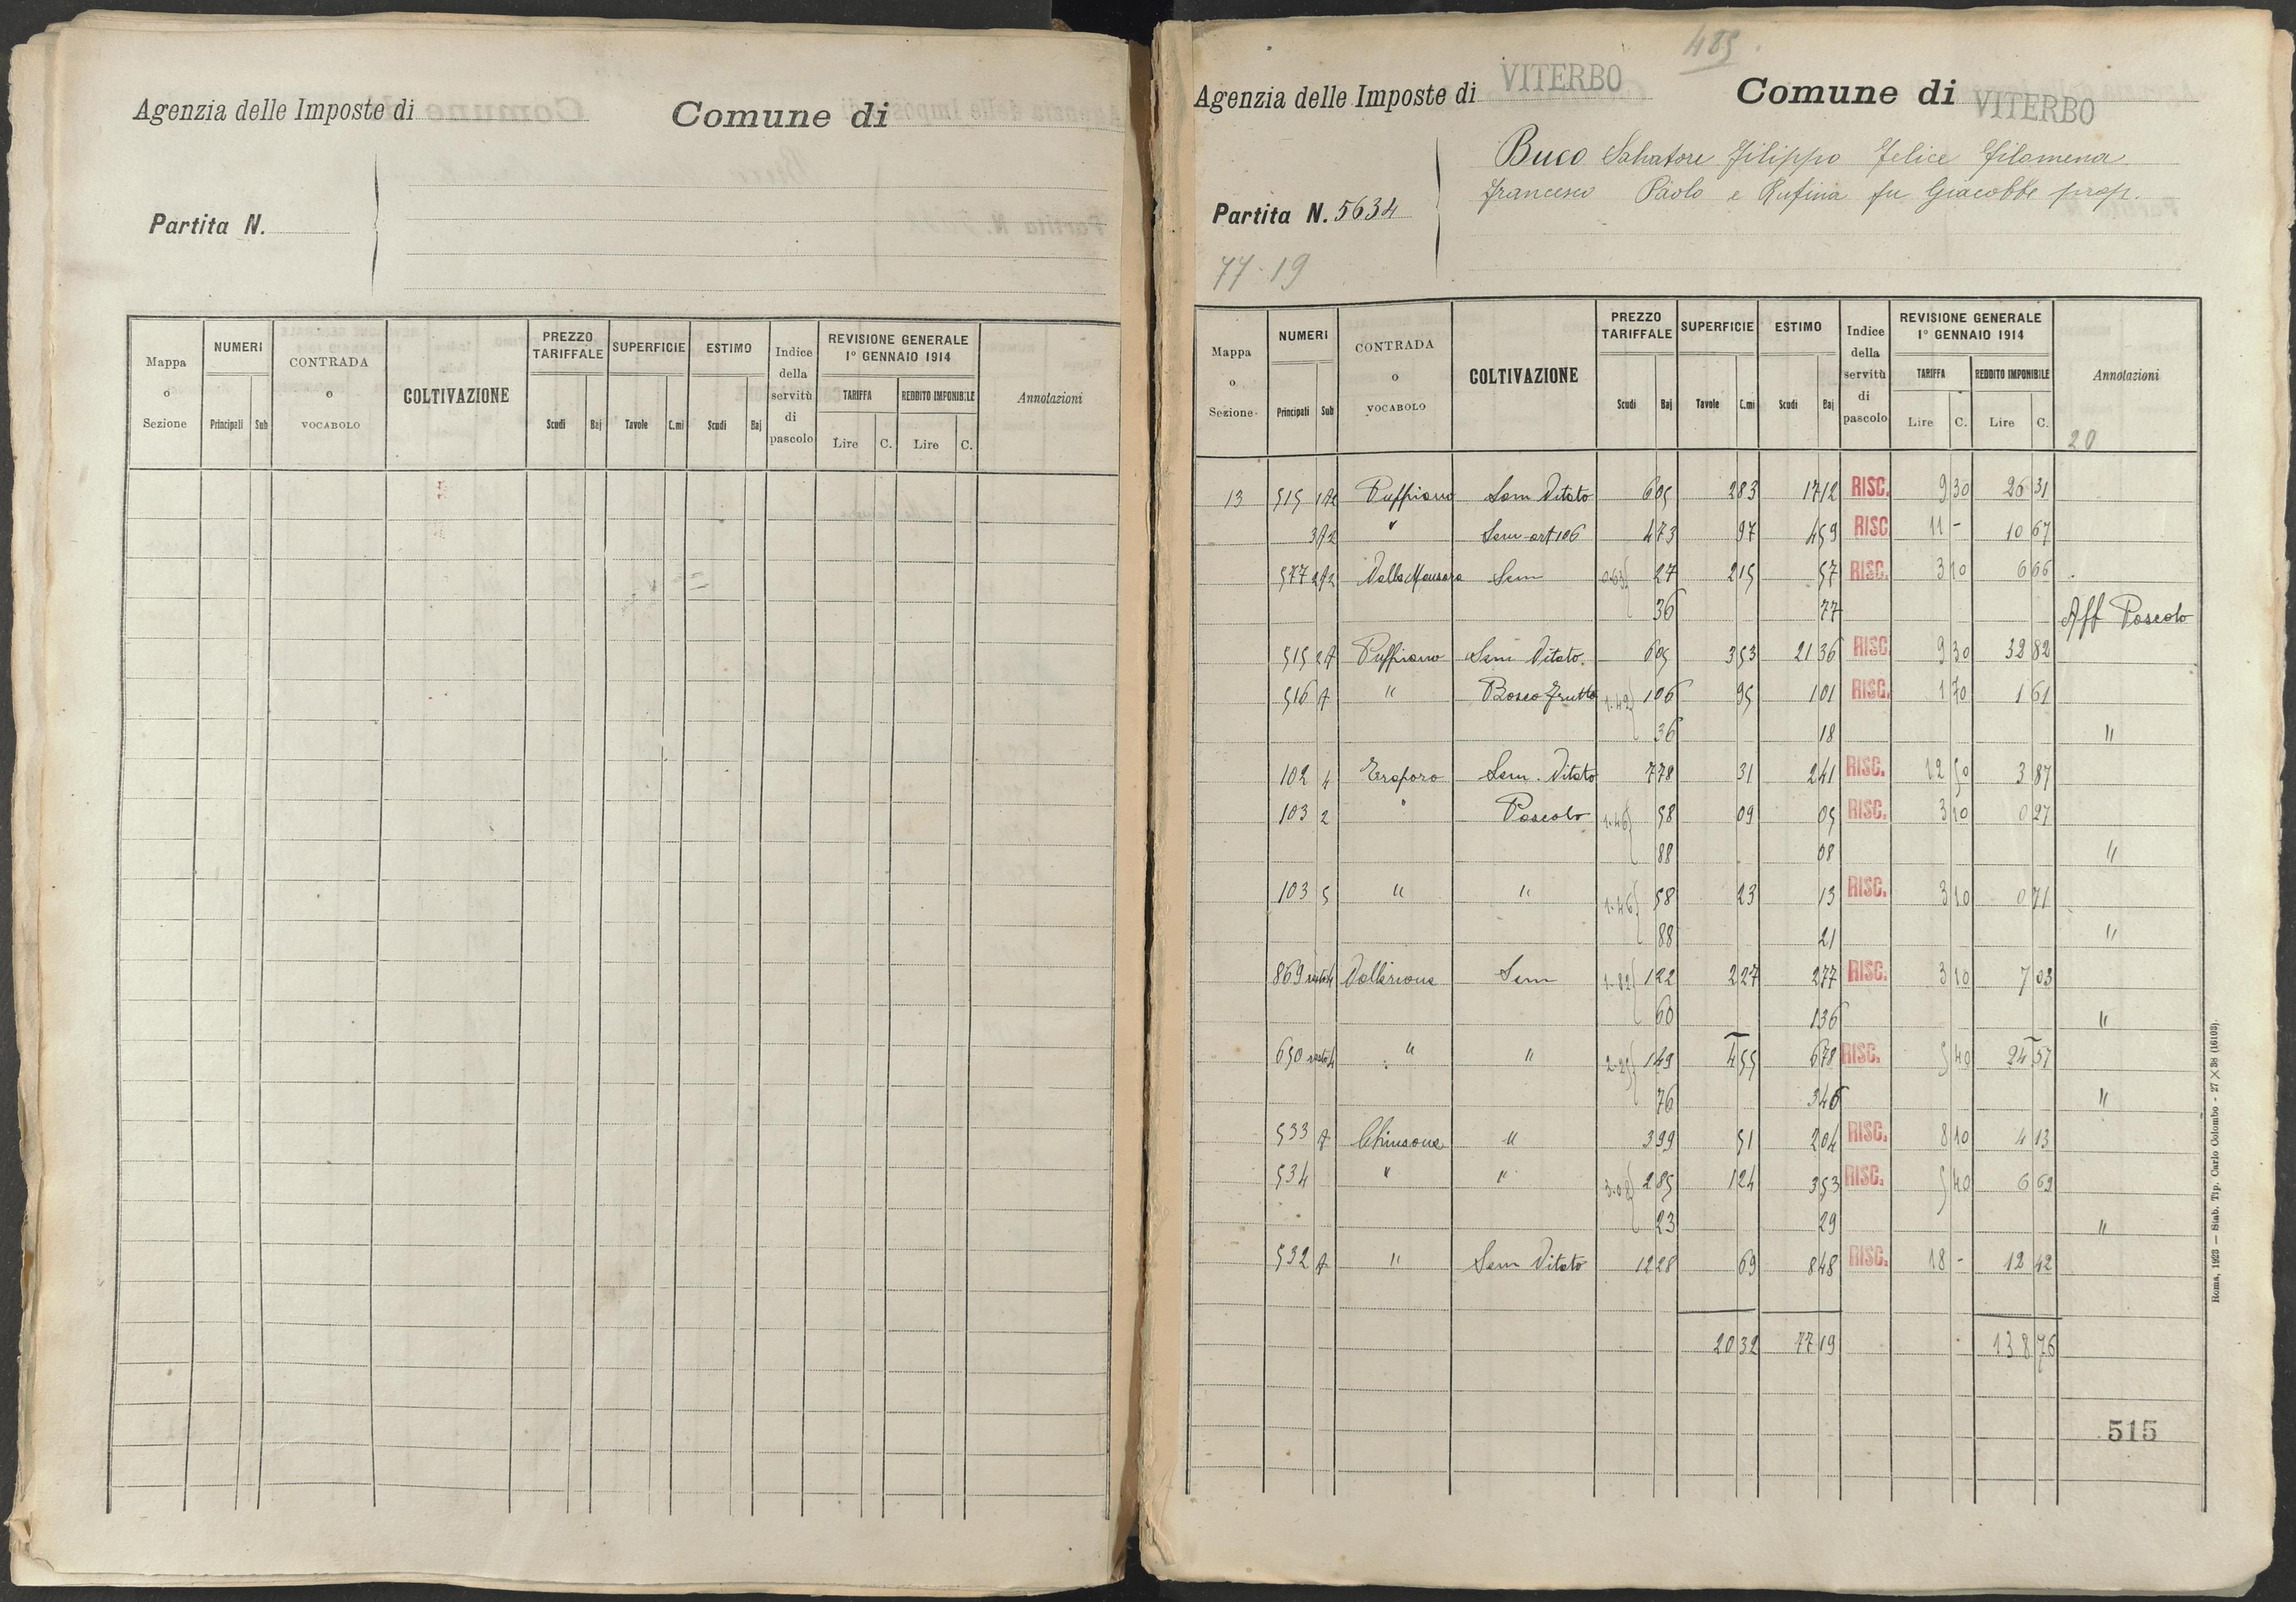 Agenzia delle Imposte di Comune di
Partita N.
Mappa o Sezione NUMERI Principali Sub CONTRADA o VOCABOLO COLTIVAZIONE PREZZO TARIFFALE Scudi Baj SUPERFICIE Tavole C.mi ESTIMO Scudi Baj Indice della servitù di pascolo REVISIONE GENERALE 1° GENNAIO 1914 TARIFFA Lire C. REDDITO IMPONIBILE Lire C. Annotazioni
485
Agenzia delle Imposte di VITERBO Comune di VITERBO
Buco Salvatore Filippo Felice Filomena
Francesco Paolo e Rufina fu Giacobbe prop.
Partita N. 5634
77.19
Mappa o Sezione NUMERI Principali Sub CONTRADA o VOCABOLO COLTIVAZIONE PREZZO TARIFFALE Scudi Baj SUPERFICIE Tavole C.mi ESTIMO Scudi Baj Indice della servitù di pascolo REVISIONE GENERALE 1° GENNAIO 1914 TARIFFA Lire C. REDDITO IMPONIBILE Lire C. Annotazioni
20
13 515 Puffiano Sem Vitato 6 05 2 83 17 12 RISC. 9 30 26 31
" Sem art 106 4 73 97 4 59 RISC 11 - 10 67
577 Sem 0.63 27 2 15 57 RISC. 3 10 6 66
36 77 Aff Pascolo
515 Puffiano Sem Vitato 6 05 3 53 21 36 RISC 9 30 32 82
516 " Bosco Frutto 1.42 1 06 95 1 01 RISC. 1 70 1 61
36 18 "
102 4 Sem. Vitato 7 78 31 2 41 RISC. 12 50 3 87
103 2 " Pascolo 1.46 58 09 05 RISC. 3 10 0 27
88 08 "
103 5 " " 1.46 58 23 13 RISC. 3 10 0 71
88 21 "
869 Sem 1.82 1 22 2 27 2 77 RISC. 3 10 7 03
60 1 36 "
650 " " 2.25 1 49 4 55 6 78 RISC. 5 40 24 57
76 3 46 "
533 Chiusone " 3 99 51 2 04 RISC. 8 10 4 13
534 " " 3.08 2 85 1 24 3 53 RISC. 5 40 6 69
23 29 "
532 " Sem Vitato 12 28 69 8 48 RISC. 18 - 12 42
20 32 77 19 138 76
515
Roma, 1923 — Stab. Tip. Carlo Colombo - 27 X 38 (16103).